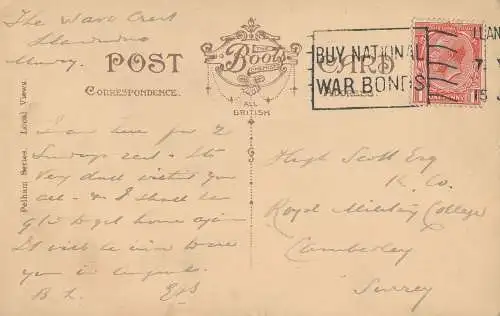 The Wave Crest
Llandudno
POST CARD
CORRESPONDENCE.
THE
Boots
ALL
BRITISH
BUY NATIONAL
WAR BONDS
LLAN
7.
15 J
Pelham Series. Local Views.
I am here for 2
Sundays rest - Its
very dull without you
all - & I shall be
glad to get home again
It will be nice to have
you in
Hugh Scott Esq
K. Co.
Royal Military College
Camberley
Surrey